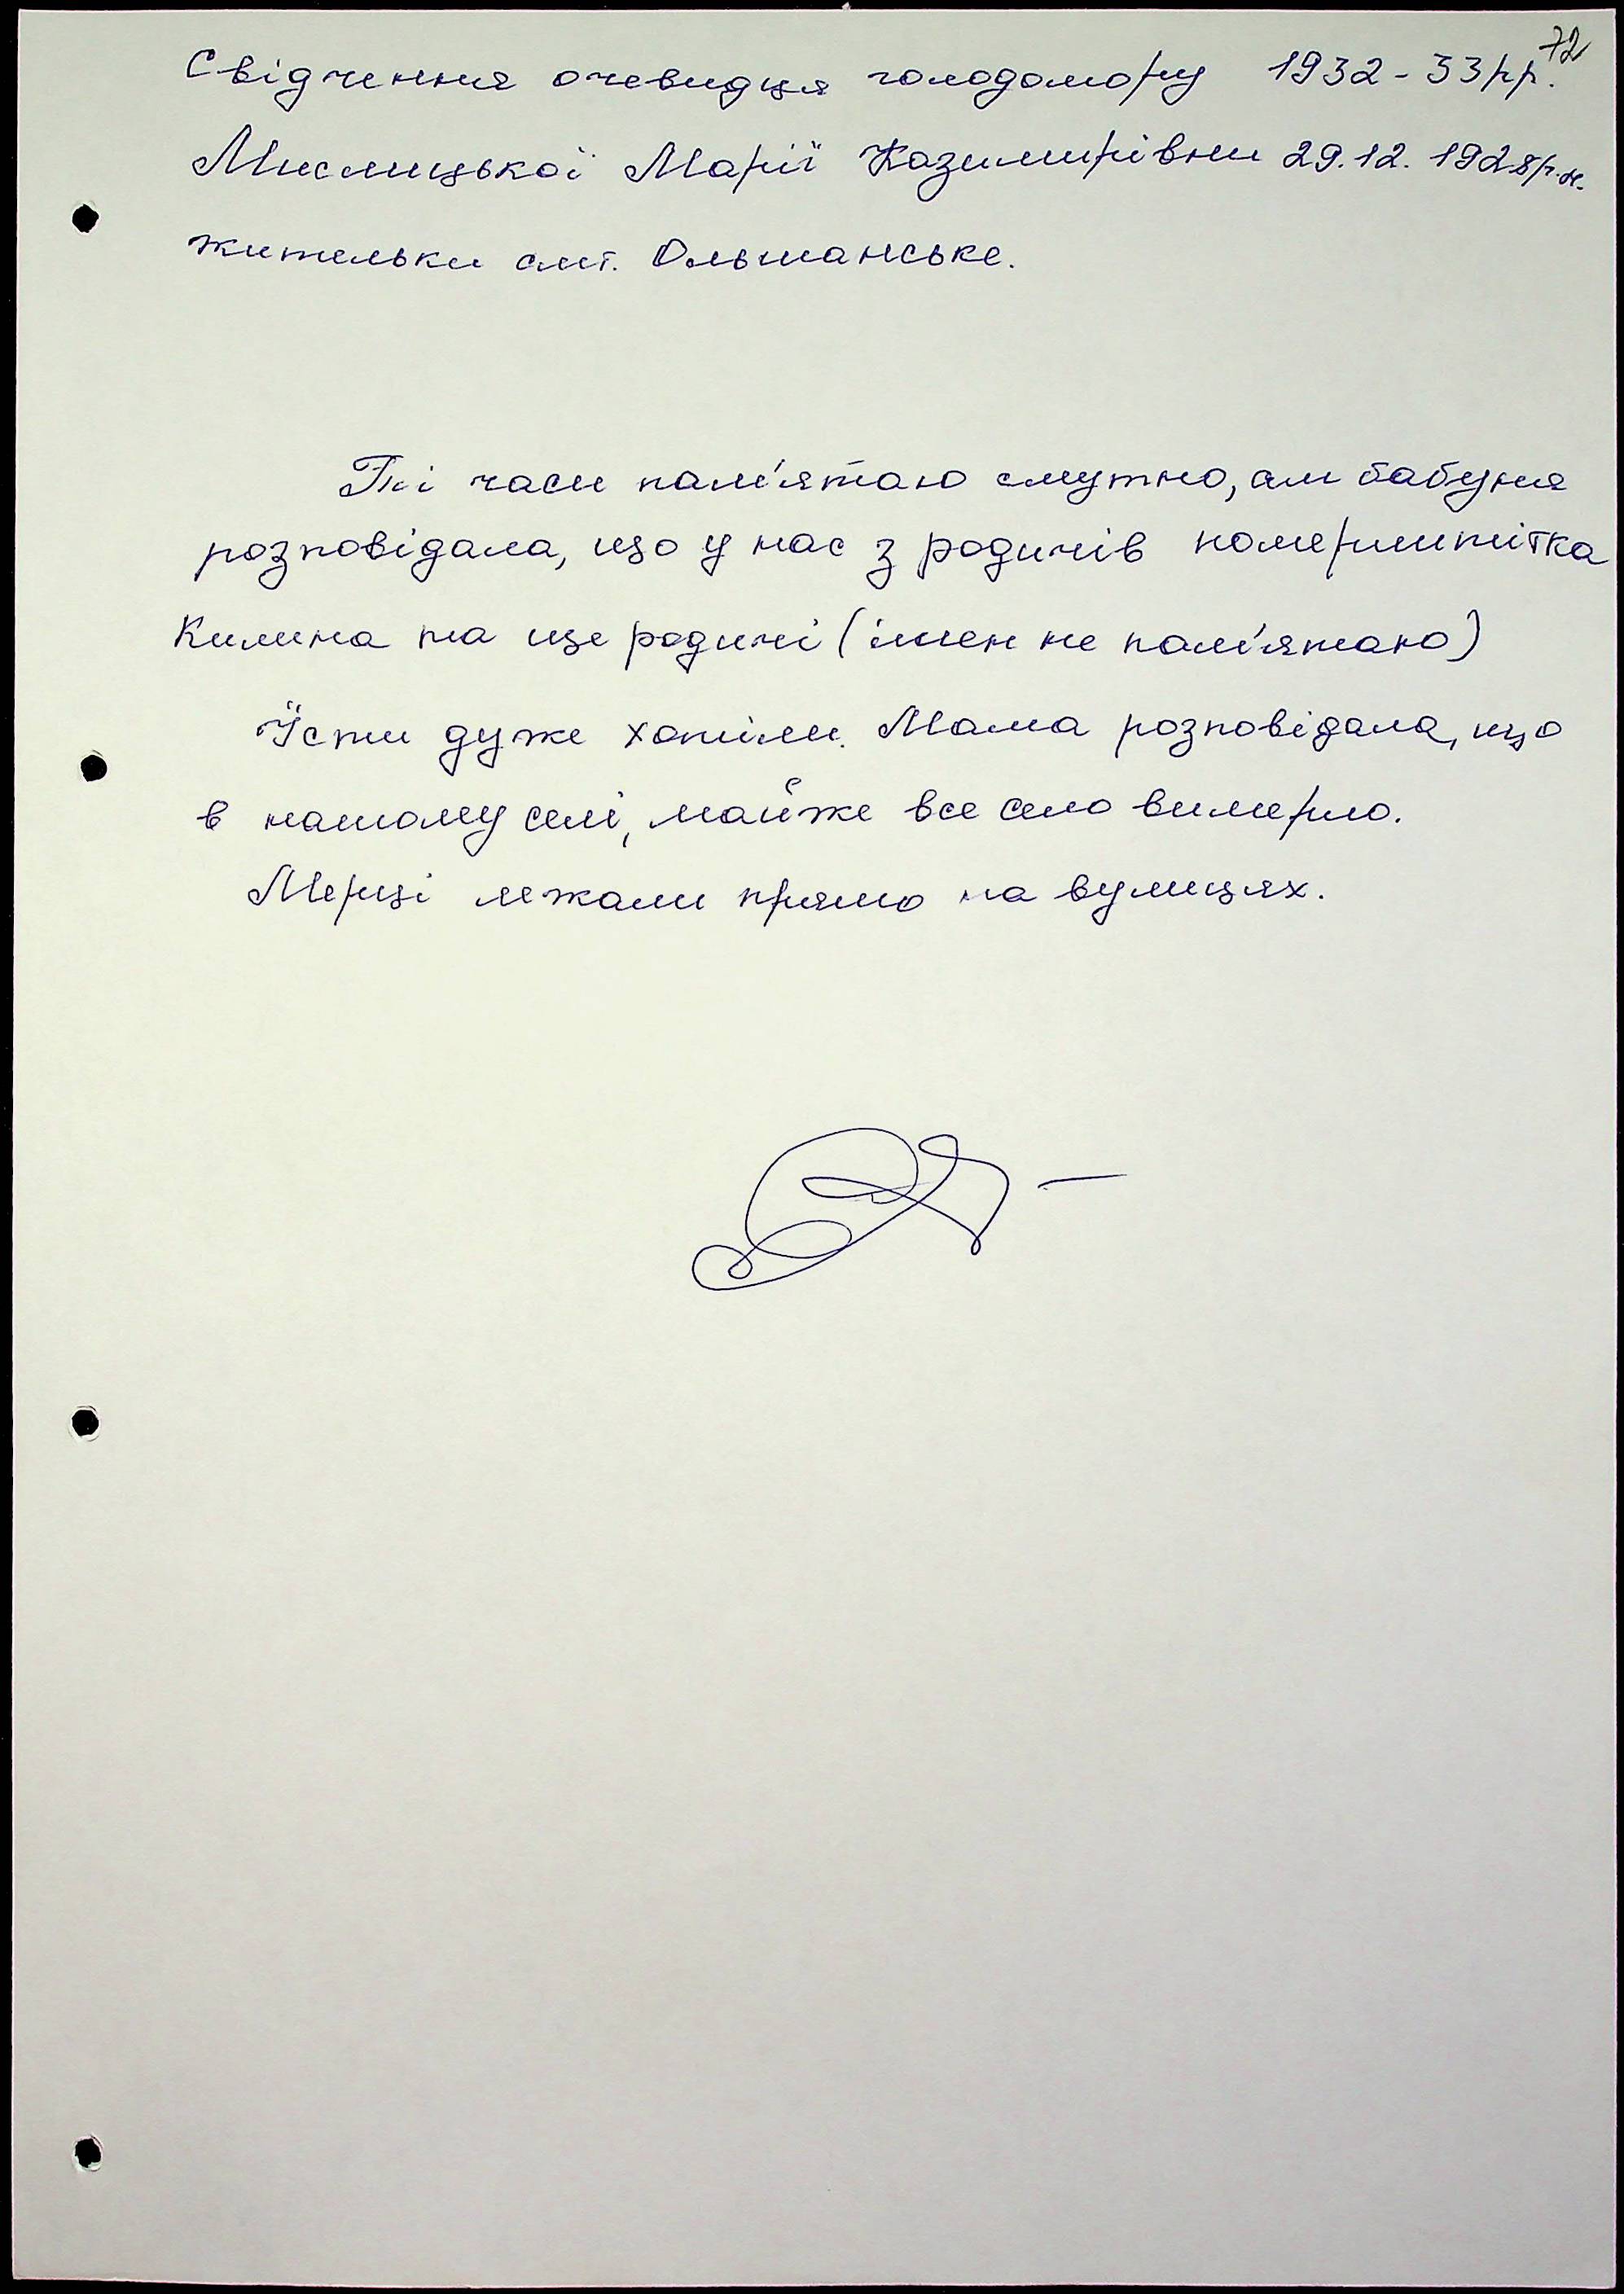 72
Свідчення очевидця голодомору 1932-33рр.
Мислицької Марії Казимирівни 29.12.1928р.н.
жительки смт. Ольшанське.
Ті часи пам'ятаю смутно, але бабуня
розповідала, що у нас з родичів померли тітка
Килина та ще родичі (імен не пам'ятаю)
Їсти дуже хотіли. Мама розповідала, що
в нашому селі, майже все село вимерло.
Мерці лежали прямо на вулицях.